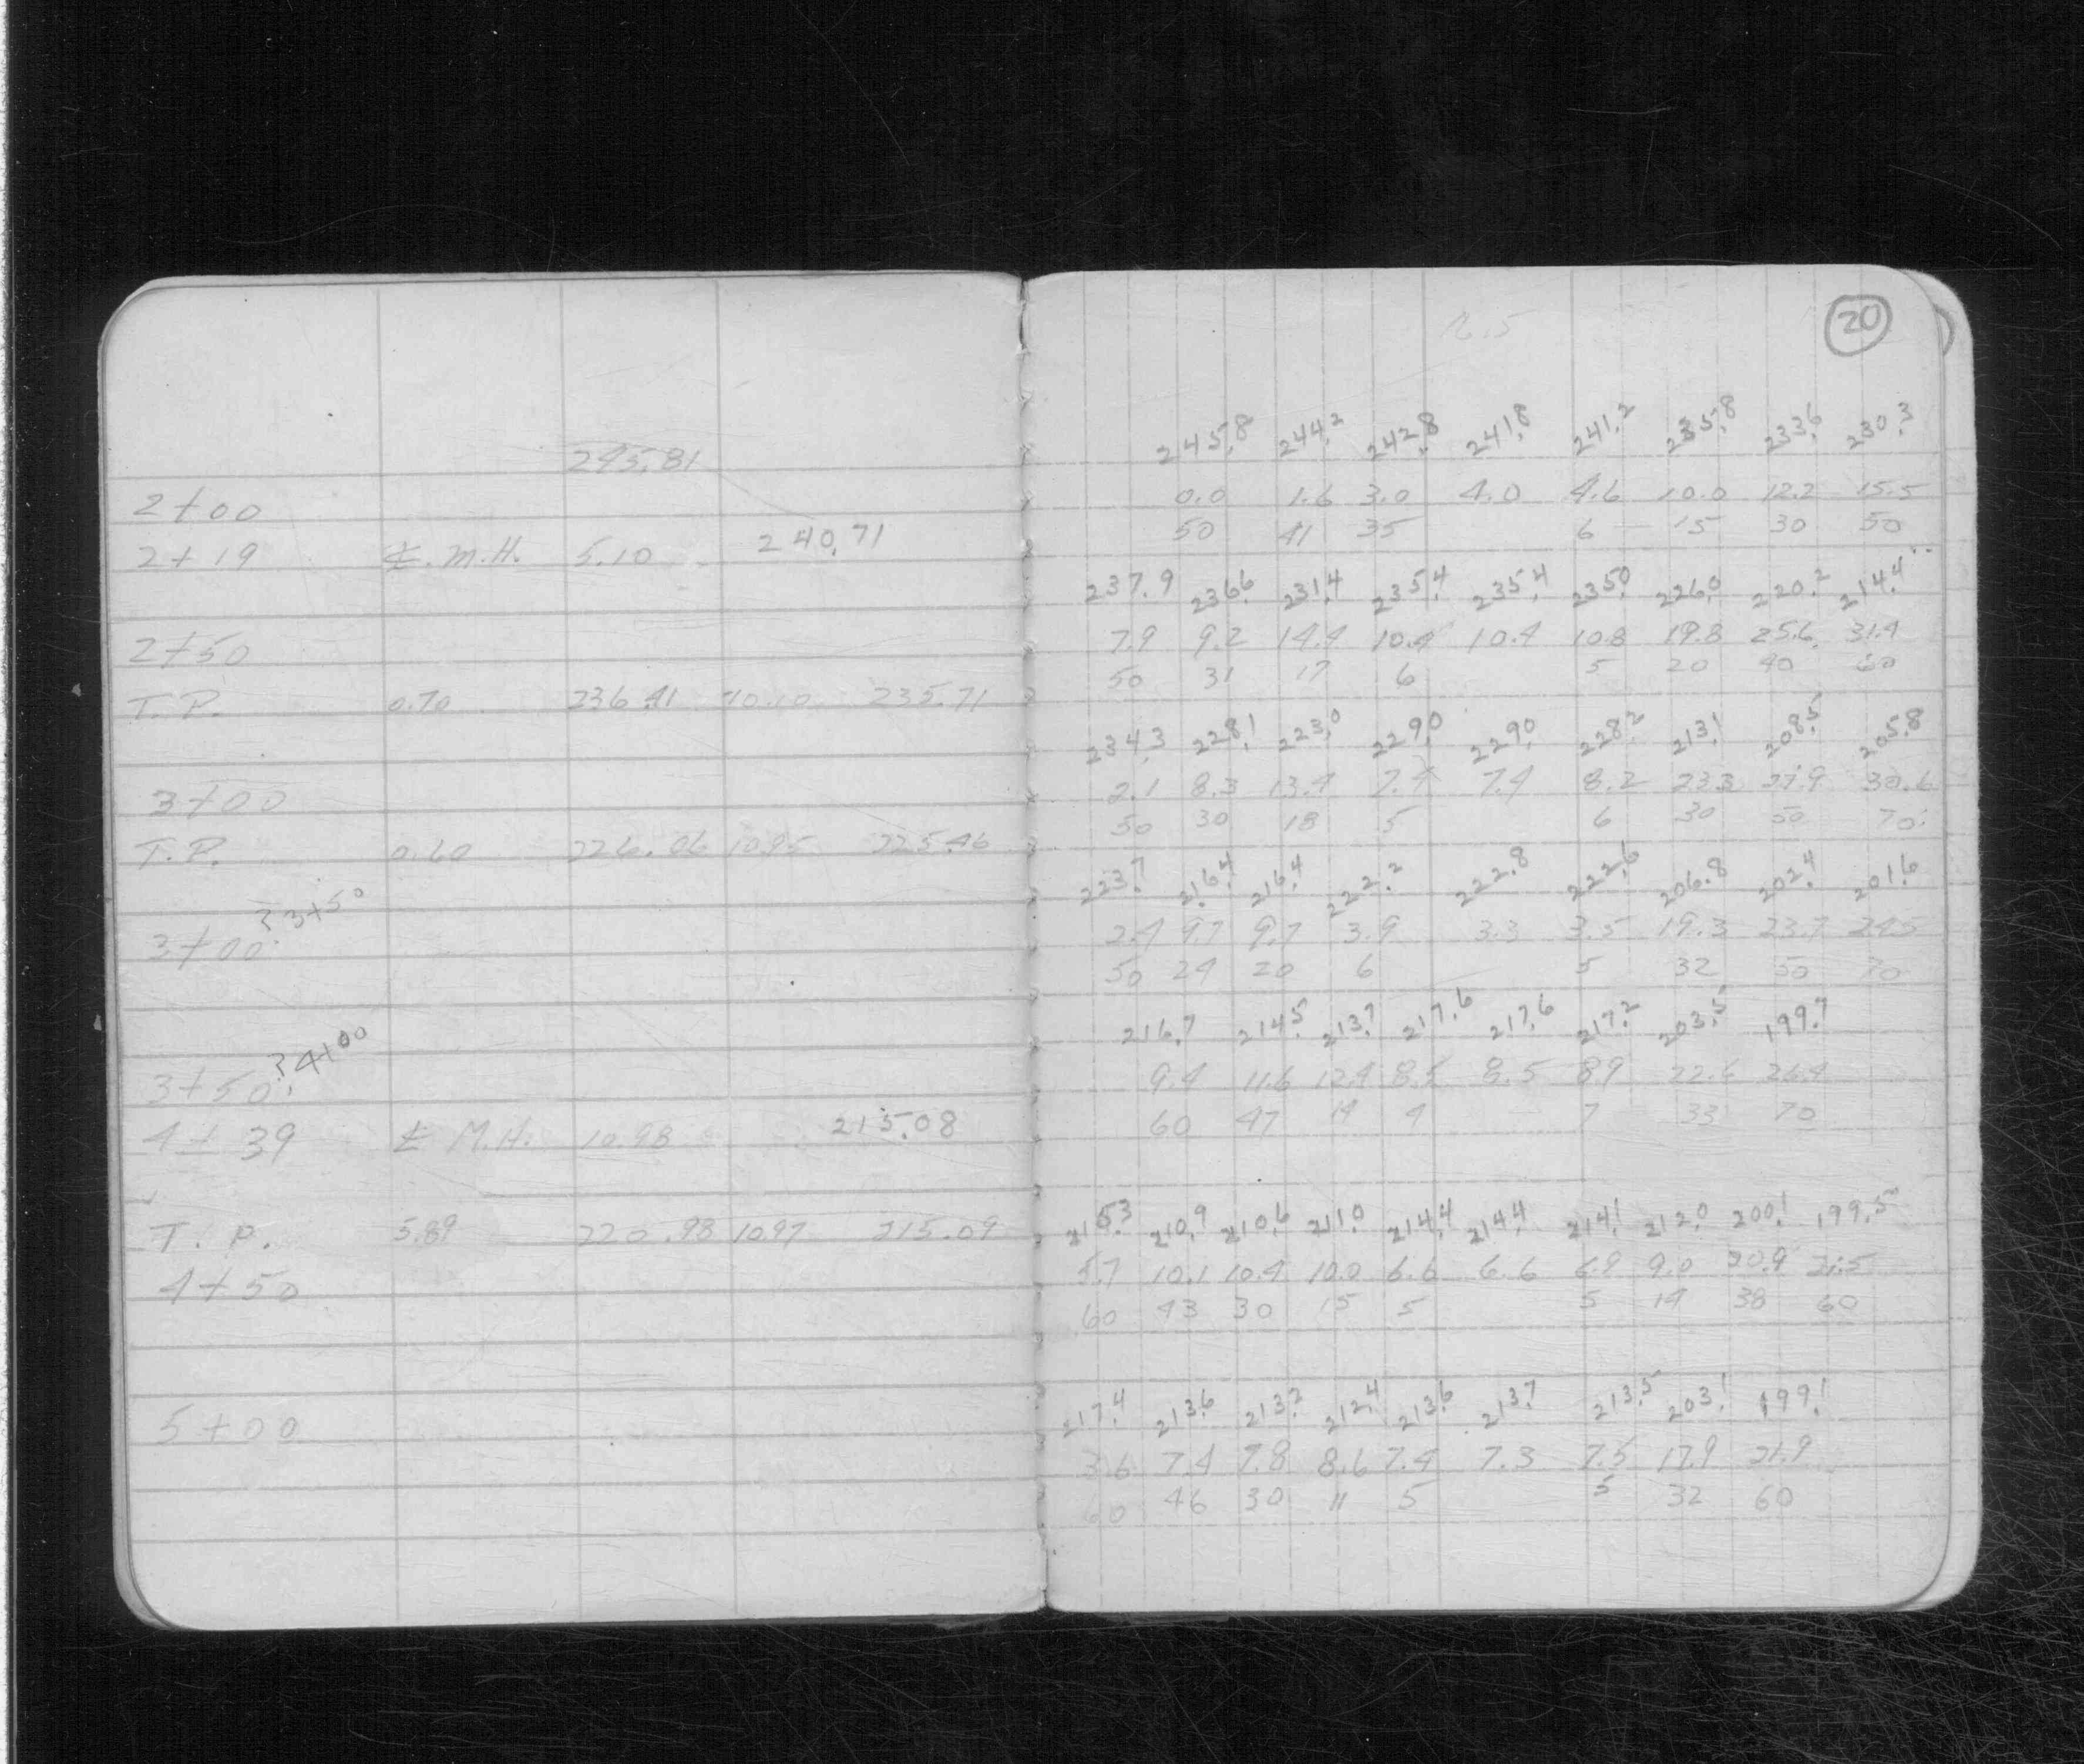 20
245.81
2+00
2+19 ℄. M.H. 5.10 240.71
2+50
T.P. 0.70 236.41 10.10 235.71
3+00
T.P. 0.60 226.06 10.95 225.46
3+00 ? 3+50
3+50 ? 4+00
4+39 ℄ M.H. 10.98 215.08
T.P. 5.89 220.98 10.97 215.09
4+50
5+00
245.8 244.2 242.8 241.8 241.2 235.8 233.6 230.3
0.0 1.6 3.0 4.0 4.6 10.0 12.2 15.5
50 41 35 6 15 30 50
237.9 236.6 231.4 235.4 235.4 235.0 226.0 220.2 214.4
7.9 9.2 14.4 10.4 10.4 10.8 19.8 25.6 31.4
50 31 17 6 5 20 40 60
234.3 228.1 223.0 229.0 229.0 228.2 213.1 208.5 205.8
2.1 8.3 13.4 7.4 7.4 8.2 23.3 27.9 30.6
50 30 18 5 6 30 50 70
223.7 216.4 216.4 222.2 222.8 222.6 206.8 202.4 201.6
2.4 9.7 9.7 3.9 3.3 3.5 19.3 23.7 24.5
50 24 20 6 5 32 50 70
216.7 214.5 213.7 217.6 217.6 217.2 203.5 199.7
9.4 11.6 12.4 8.5 8.5 8.9 22.6 26.4
60 47 14 4 7 33 70
215.3 210.9 210.6 211.0 214.4 214.4 214.1 212.0 200.1 199.5
5.7 10.1 10.4 10.0 6.6 6.6 6.9 9.0 20.9 21.5
60 43 30 15 5 5 14 38 60
217.4 213.6 213.2 212.4 213.6 213.7 213.5 203.1 199.1
3.6 7.4 7.8 8.6 7.4 7.3 7.5 17.9 21.9
60 46 30 11 5 5 32 60